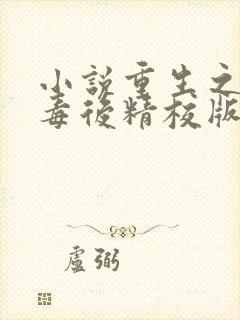 小説重生之
毒後精校版
盧弼